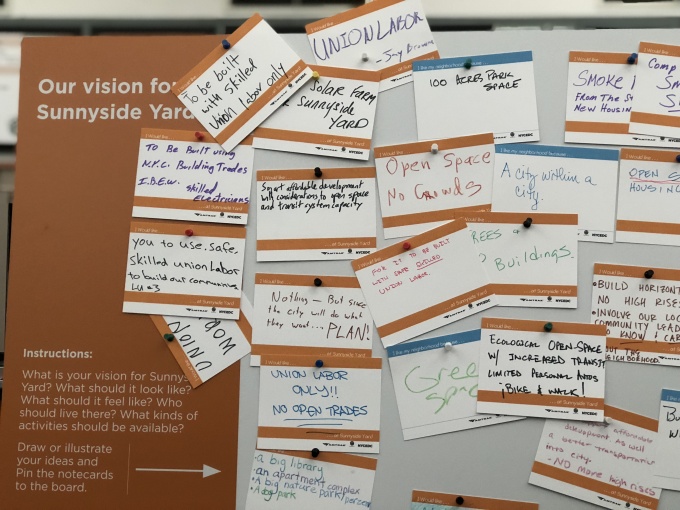 Our vision for
Sunnyside Yard
Instructions:
What is your vision for Sunny
Yard? What should it look like?
What should it feel like? Who
should live there? What kinds of
activities should be available?
Draw or illustrate
your ideas and
Pin the notecards
to the board.
To be built
with skilled
Union labor only
I would like...
UNION LABOR
Solar Farm
Sunnyside
YARD
...at Sunnyside Yard
I like my neighborhood because...
100 ACRES PARK
SPACE
NYCEDC
I would like...
SMOKE
FROM THE
NEW HOUSIN
I would like...
To BE Built using
N.Y.C. Building Trades
I.B.E.W. skilled
Electricians
AMTRAK NYCEDC
I would like...
Smart affordable development
with considerations to open space
and transit system capacity
...at Sunnyside Yard
I would like...
Open Space
No Crowds
...at Sunnyside Yard
A city within a
city.
AMTRAK NYCEDC
I would like...
OPEN
HOUSING
I would like...
you to use safe,
skilled union labor
to build out communities
LU #3
...at Sunnyside Yard
AMTRAK NYCEDC
I would like...
FOR IT TO BE BUILT
WITH SAFE SKILLED
UNION LABOR.
...at Sunnyside Yard
TREES &
Buildings.
...at Sunnyside Yard
AMTRAK NYCEDC
I would like...
Nothing – But since
the city will do what
they want... PLAN!
...at Sunnyside Yard
I would like...
•BUILD HORIZONT
NO HIGH RISES
•INVOLVE OUR LOC
COMMUNITY LEAD
NEIGHBORHOOD
UNION
I would like...
UNION LABOR
ONLY!!
NO OPEN TRADES
...at Sunnyside Yard
Green
Space
I would like...
ECOLOGICAL OPEN-SPACE
W/ INCREASED TRANSIT
LIMITED PERSONAL AUTOS
¡BIKE & WALK!
...at Sunnyside Yard
AMTRAK NYCEDC
I would like...
-a big library
-an apartment complex
•A big nature park
•A dog park
development as well
a better transportation
city.
-NO more high rises
...at Sunnyside Yard
I would like...